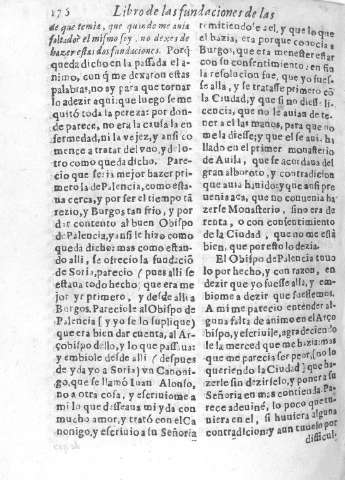 176 Libro de las fundaciones de las
de que temia, que quando me auia
faltado el mismo soy, no dexes de
hazer estas dos fundaciones. Porq̃
queda dicho en la passada el a-
nimo, con q̃ me dexaron estas
palabras, no ay para que tornar
lo a dezir aqui: que luego se me
quitò toda la pereza: por don-
de parece, no era la causa la en-
fermedad, ni la vejez, y ansi co
mence a tratar del vno, y de lo
tro como queda dicho. Pare-
cio que seria mejor hazer pri-
mero la de Palencia, como esta-
ua cerca, y por ser el tiempo tã
rezio, y Burgos tan frio, y por
dar contento al buen Obispo
de Palencia, y ansi se hizo como
queda dicho: mas como estan-
do alli, se ofrecio la fundaciõ
de Soria, parecio (pues alli se
estaua todo hecho) que era me
jor yr primero, y desde alli a
Burgos. Pareciole al Obispo de
Palencia [y yo se lo suplique]
que era bien dar cuenta, al Ar-
çobispo dello, y lo que passaua:
y embiole desde alli (despues
de yda yo a Soria) vn Canoni-
go, que se llamò Iuan Alonso,
no a otra cosa, y escriuiome a
mi lo que desseaua mi yda con
mucho amor, y tratò con el Ca
nonigo, y escriuio a su Señoria
remitiendose a el, y que lo que
el hazia, era porque conocia a
Burgos, que era menester estar
con su consentimiento: en fin
la resolucion fue, que yo fues-
se alla, y se tratasse primero cõ
la Ciudad, y que si no diesse li-
cencia, que no le auian de te-
ner a el las manos, para que no
me la diesse; y que el se auia ha
llado en el primer monasterio
de Auila, que se acordaua del
gran alboroto, y contradicion
que auia hauido: y que ansi pre
uenia aca, que no conuenia ha
zerse Monasterio, sino era de
renta, o con consentimiento
de la Ciudad, que no me està
bien, que por esto lo dezia.
El Obispo de Palencia tuuo
lo por hecho, y con razon, en
dezir que yo fuesse alla, y em-
biome a dezir que fuessemos.
A mi me parecio entender al-
guna falta de animo en el Arço
bispo, y escriuile, agradeciendo
le la merced que me hazia: mas
que me parecia ser peor, (no lo
queriendo la Ciudad) que ha-
zerle sin dezirselo, y poner a su
Señoria en mas contienda. Pa-
rece adeuiné, lo poco que tu-
uiera en el, si huuiera alguna
contradicion: y aun tuuelo por
dificul-